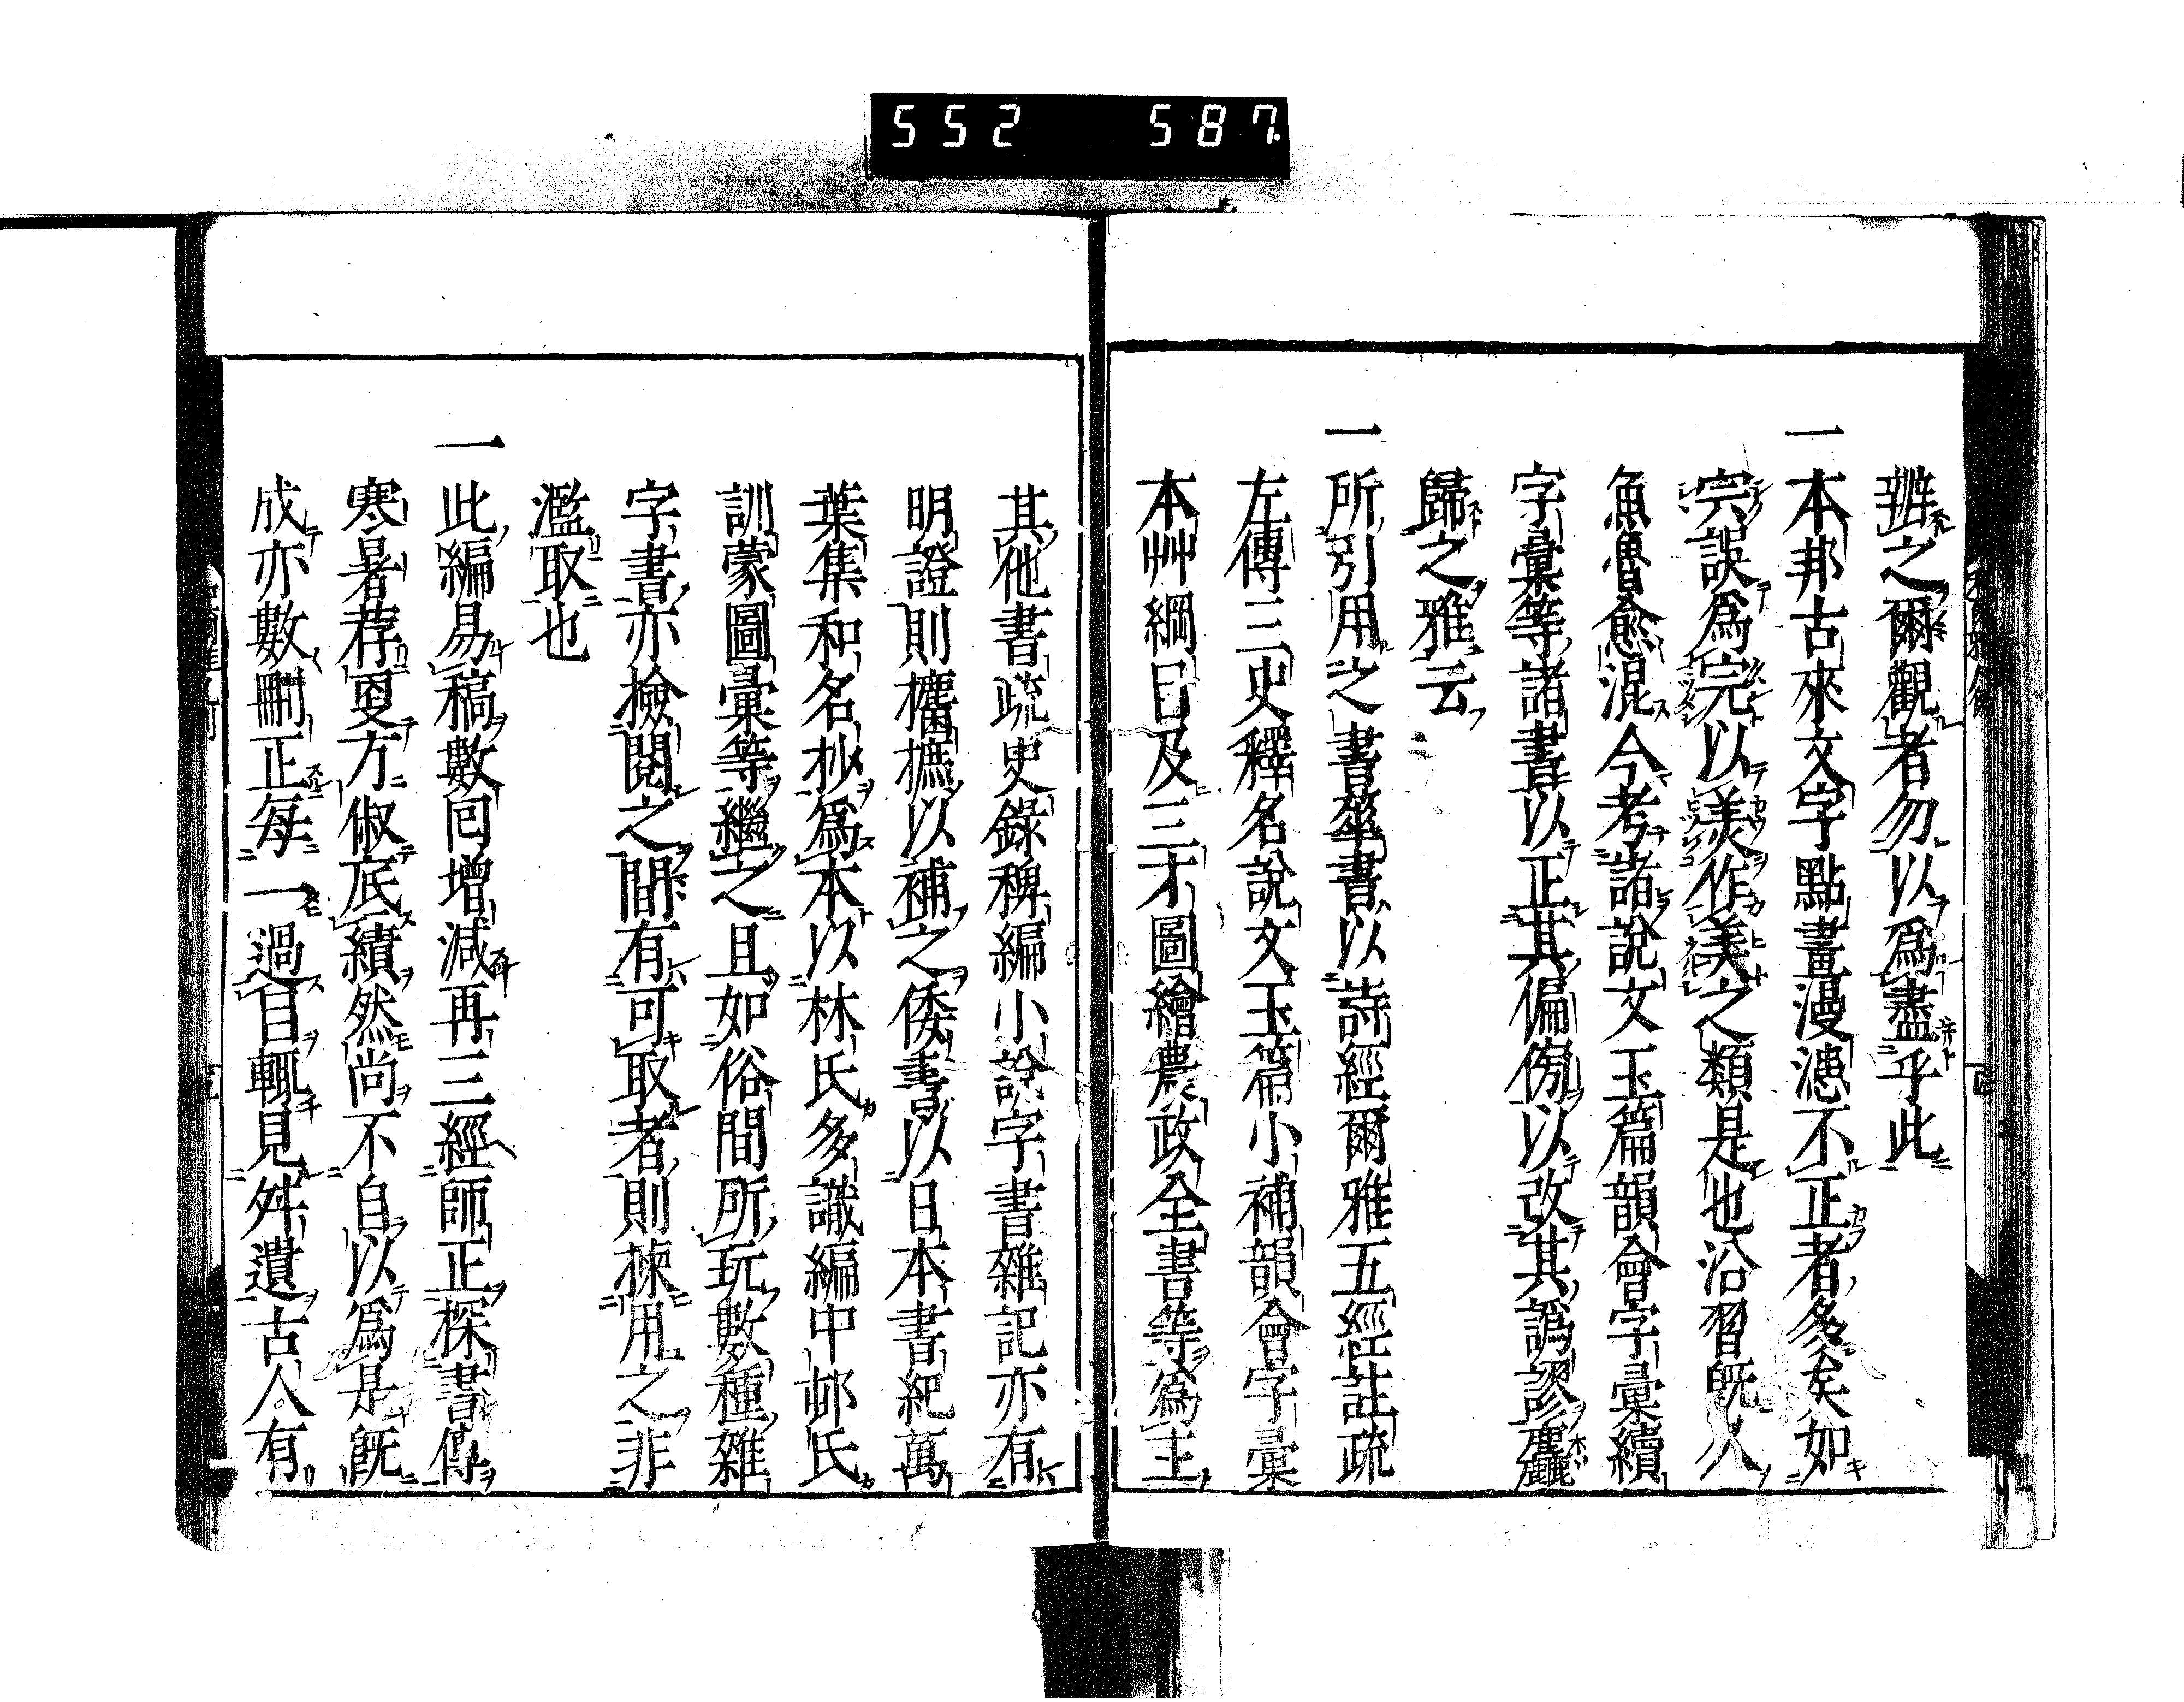 552 587
辨之爾觀者勿以爲盡乎此
一本邦古來文字點畫漫漶不正者多矣如
宍誤爲完以羙作美之類是也沿習旣久
魚魯愈混今考諸說文玉篇韻會字彙續
字彙等諸書以正其偏傍以改其譌謬麤
歸之雅云
一所引用之書率書以詩經爾雅五經註疏
左傳三史釋名說文玉篇小補韻會字彙
本艸綱目及三才圖繪農政全書等爲主
其他書疏史錄稗編小說字書雜記亦有
明證則攟摭以補之倭書以日本書紀萬
葉集和名抄爲本以林氏多識編中邨氏
訓蒙圖彙等繼之且如俗間所玩數種雜
字書亦撿閱之間有可取者則揀用之非
濫取也
一此編易稿數囘增減再三經師正探書傳
寒暑荐更方俶底績然尚不自以爲是旣
成亦數刪正每一過目輒見舛遺古人有